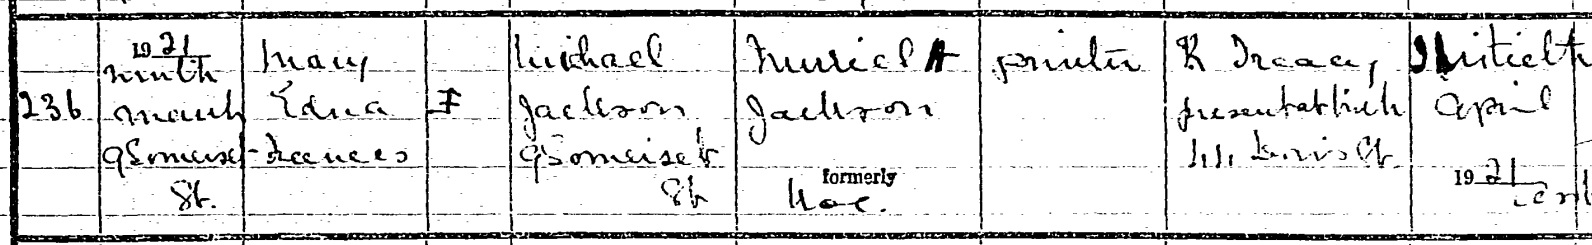 236
19 21
ninth
March
9 Somerset
St.
Mary
Edna
Frances
F
Michael
Jackson
9 Somerset
St
Muriel A
Jackson
formerly
printer
K Treacy
present at birth
St.
April
19 21